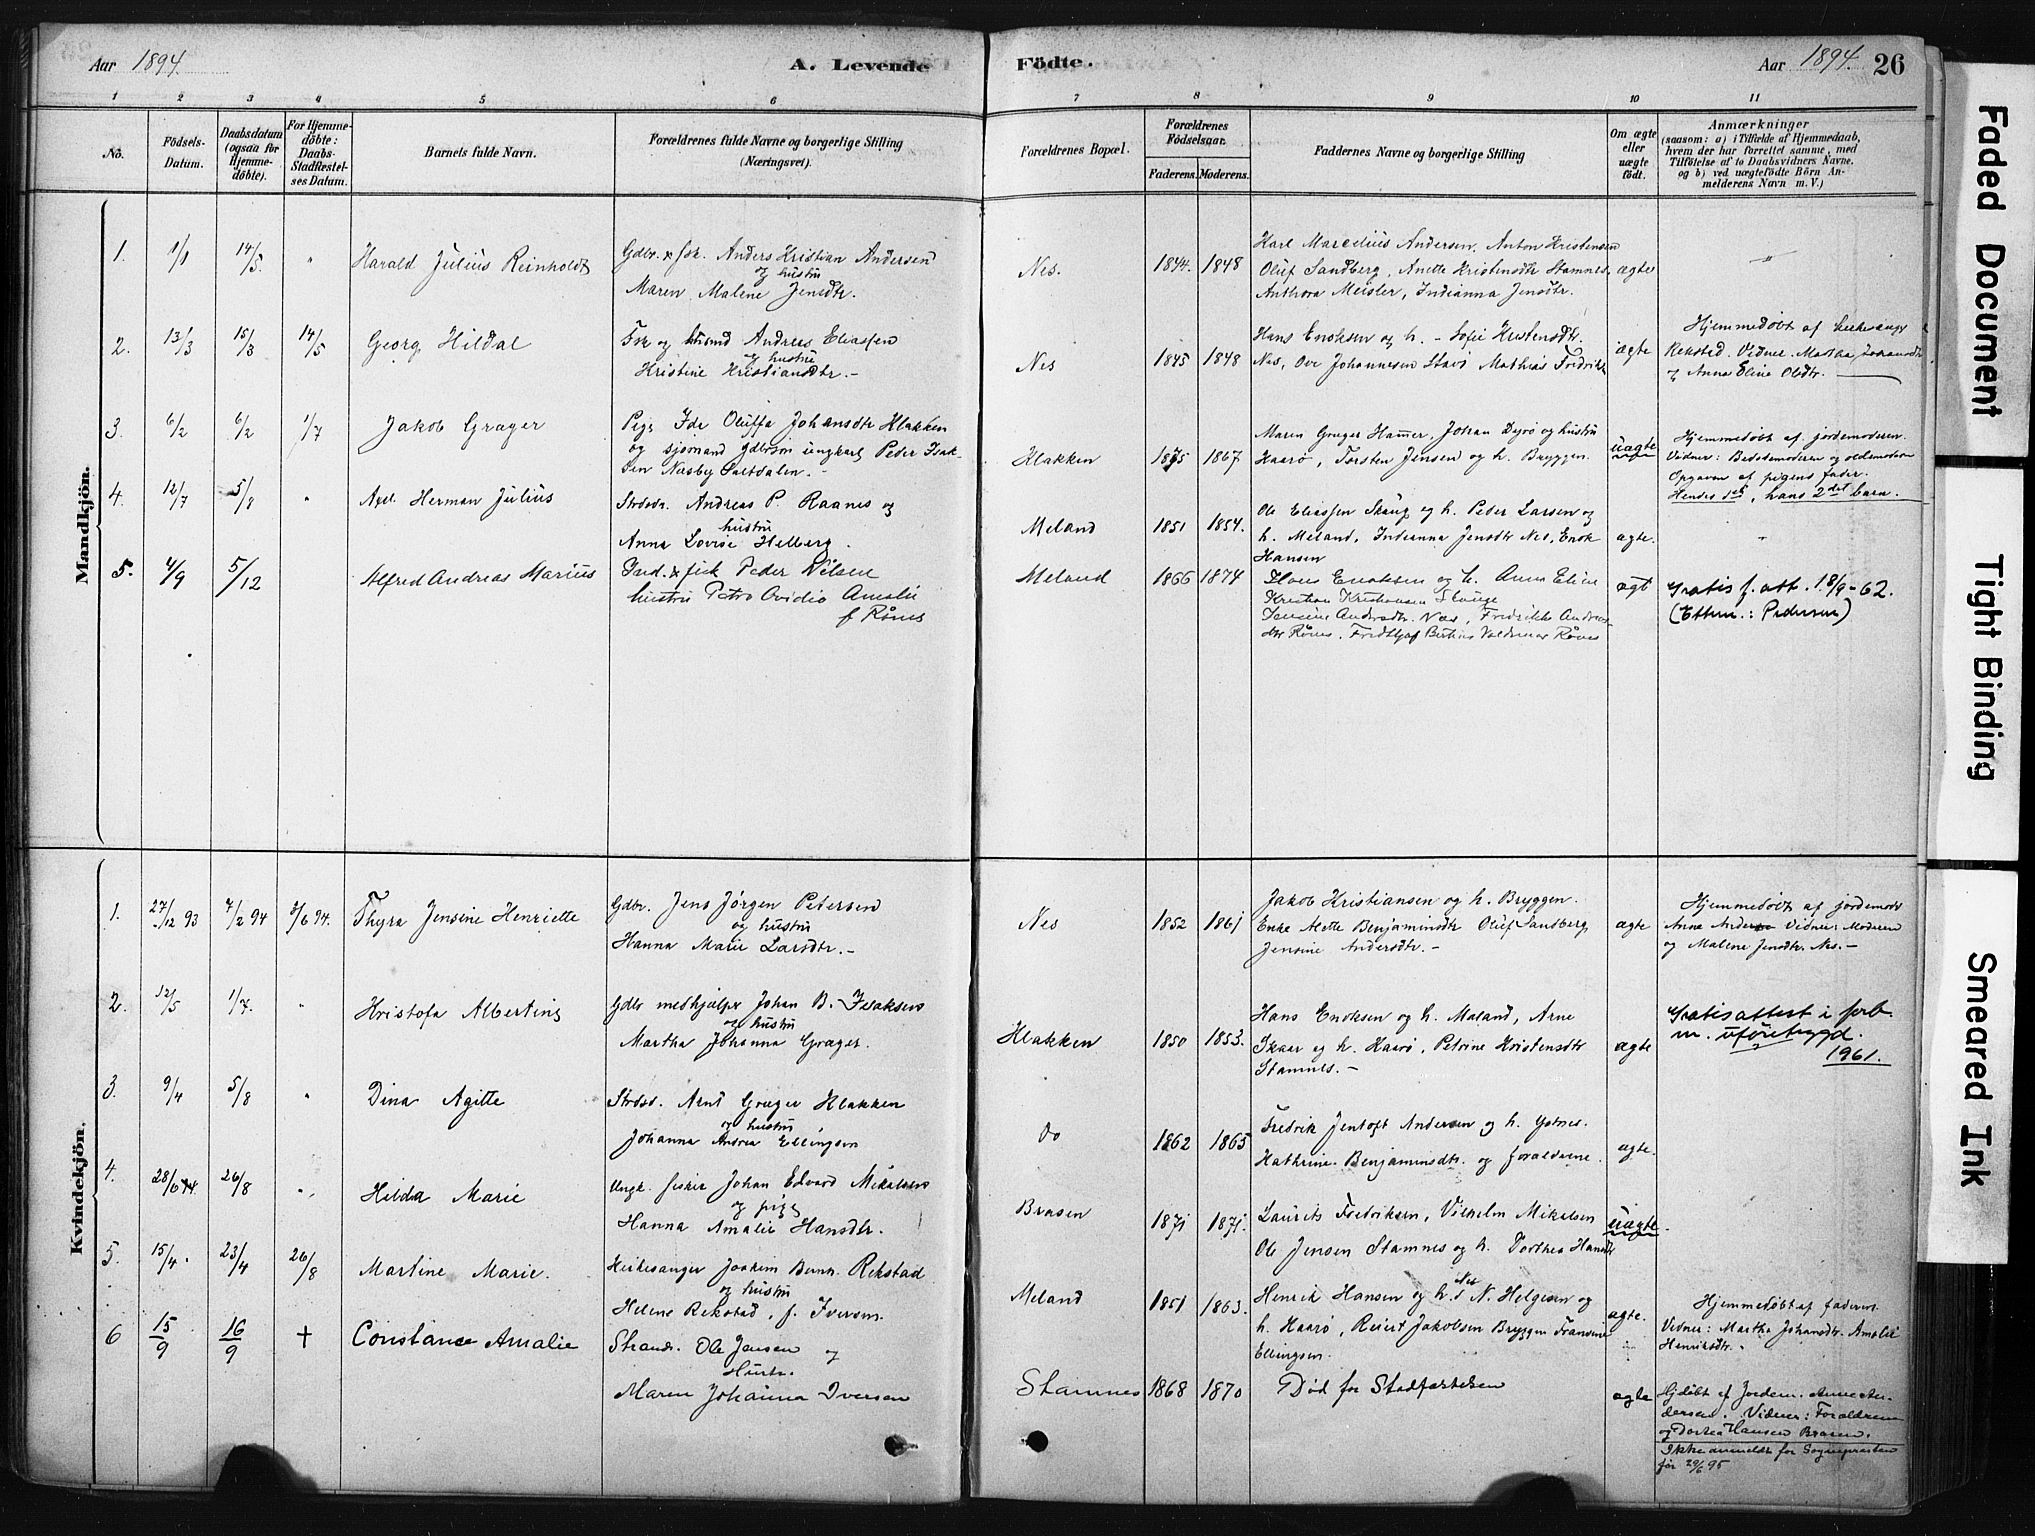 Aar 1894.
A. Levende Födte.
Aar 1894. 26
1 2 3 4 5 6 7 8 9 10 11
No.
Födsels-Datum.
Daabsdatum (ogsaa for Hjemme-döbte).
For Hjemme-döbte: Daabs-Stadfæstel-ses Datum.
Barnets fulde Navn.
Forældrenes fulde Navne og borgerlige Stilling (Næringsvei).
Forældrenes Bopæl.
Forældrenes Födselsaar.
Faderens. Moderens.
Faddernes Navne og borgerlige Stilling
Om ægte eller uægte födt.
Anmærkninger
(saasom: a) i Tilfælde af Hjemmedaab,
hvem der har forrettet samme, med
Tilföielse af to Daabsvidners Navne,
og b) ved uægtefödte Börn An-
melderens Navn m. V.)
Mandkjön.
1. 1/1 14/5. "
Harald Julius Reinholdt
Gdbr. & fsk. Anders Kristian Andersen
og hustru
Maren Malene Jensdtr.
Nes. 1844. 1848
Karl Marcelius Andersen, Anton Kristensen
Oluf Sandberg, Anette Kristensdtr Stamnes,
Anthora Meisler, Indianna Jensdtr.
ægte
"
2. 13/3 15/3 14/5
Georg Hildal
Fsk og husmd Andreas Eliassen
og hustru
Kristine Kristiansdtr. -
Nes 1845 1848
Hans Enoksen og h. - Sofie Kristensdtr.
Nes, Ove Johannesen Stavs Mathias Fredriks
ægte
Hjemmedøbt af kirkesanger
Rekstad. Vidner. Martha Johansdtr
og Anna Elina Olsdtr.
3. 6/2 6/2 1/7
Jakob Græger
Pige Ida Oluffa Johansdtr Klakken
og sjømand gdbrsøn ungkarl Peder Isak-
sen Næsby Saltdalen. -
Klakken 1875 1867
Maren Græger Hammer, Johan Dyrø og hustru
Haarø, Torsten Jensen og h. Bryggen.
uægte
Hjemmedøbt af jordemoderen.
Vidner: Bedstemoderen og oldemoderen
Opgaven af pigens fader.
Hendes 1ste, hans 2det barn.
4. 12/7 5/8 "
Axel Herman Julius
Strdsdr. Andreas P. Raanes og
hustru
Anna Lovise Helberg.
Meland 1851 1854.
Ole Eliassen Skaug og h. Peder Larsen og
h. Meland, Indianna Jensdtr Nes, Enok
Hansen
ægte.
"
5. 4/9 5/12
Alfred Andreas Marius
Ind. & fisk Peder Nilsen
hustru Petra Ovidia Amalie
f Rønes
Meland 1866 1874
Hans Enoksen og h. Anna Eline
Kristian Kristiansen Slauge
Jensine Andersdtr. Næs, Fredrikke Andreas-
dtr Rønes. Fredthjof Bertius Valdemar Rønes
ægt
Gratis f. att. 18/9-62.
(Ettern.: Pedersen)
Kvindekjön.
1. 27/12 93 7/2 94 3/6 94.
Thyra Jensine Henriette
Gdbr. Jens Jørgen Petersen
og hustru
Hanna Marie Larsdtr. -
Nes 1852 1861
Jakob Kristiansen og h. Bryggen.
Enke Aletta Benjaminsdtr Oluf Sandberg,
Jensine Andersdtr. -
ægte
Hjemmedøbt af jordemodr
Anne Anders Vidner: Moderen
og Malene Jensdtr. Nes. -
2. 12/5 1/7. "
Kristofa Albertine
Gdbr medhjælper Johan B. Isaksen
og hustru
Martha Johanna Græger.
Klakken 1850 1853.
Hans Enoksen og h. Maland, Arne
Skaar og h. Haarø, Petrine Kristensdtr
Stamnes. -
ægte
Gratisattest i forb
m. uføretrygd.
1961.
3. 9/4 5/8 "
Dina Agitte
Strdsd. Arnt Græger Klakken
og hustru
Johanna Andrea Ellingsen
do 1862 1865
Fredrik Jentoft Andersen og h. Ystnes.
Kathrine Benjaminsdtr. og forældrene.
ægte.
4. 28/6 94. 26/8 "
Hilda Marie
Ungk. fisker Johan Edvard Mikalsen
og pige
Hanna Amalie Hansdtr.
Brasen 1871 1871.
Laurits Fredriksen, Vilhelm Mikalsen
Ole Jensen Stamnes og h. Dorthea Hansdtr
uægte.
5. 15/4. 23/4 26/8
Martine Marie.
Kirkesanger Joakim Bernh. Rekstad
og hustru
Helene Rekstad, f. Iversen.
Meland 1851 1863.
Henrik Hansen og h. Nes N. Helgesen og
h. Haarø, Reiert Jakobsen Bryggen Fransine
Ellingsen.
ægte.
Hjemmedøbt af faderen.
Vidner: Martha Johansdtr. Amalie
Henriksdtr.
6 15/9 16/9 †
Constance Amalie
Strands. Ole Jensen og
Hustr.
Maren Johanna Iversen
Stamnes 1868 1870
Død før Stadfæstelsen
ægte
Hjdøbt af Jordem. Anne An-
dersen. Vidner: Forældrene
og Dortea Hansen Brasen.
Ikke anmeldt for Sognepresten
før 29/6 95
Faded Document
Tight Binding
Smeared Ink